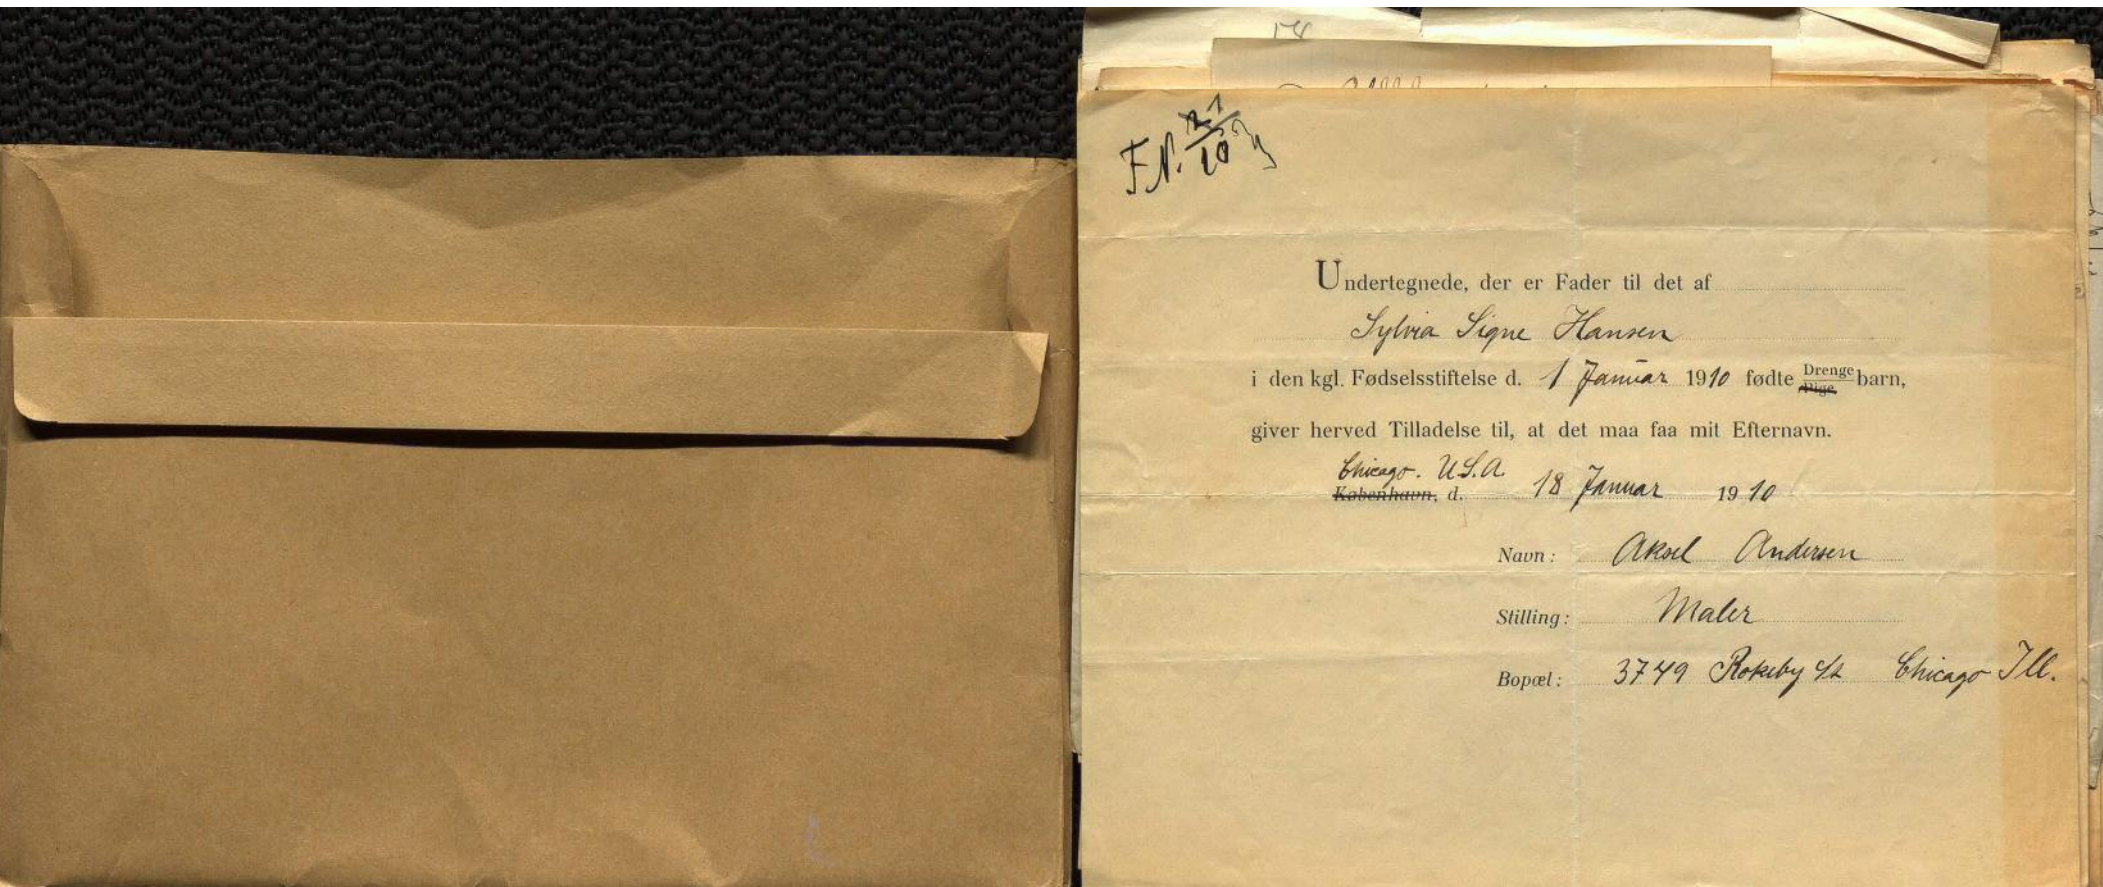 F.N. 21/10
Undertegnede, der er Fader til det af
Sylvia Signe Hansen
i den kgl. Fødselsstiftelse d. 1 Januar 1910 fødte Drenge Pige barn,
giver herved Tilladelse til, at det maa faa mit Efternavn.
Chicago. U.S.A.
København, d. 18 Januar 1910
Navn: Aksel Andersen
Stilling: Maler
Bopæl: 3749 Rokeby St Chicago Ill.